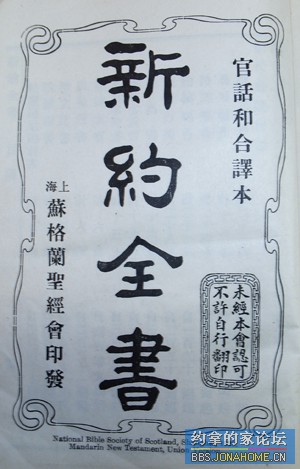 官話和合譯本
未經本會認可
不許自行翻印
新約全書
上海
蘇格蘭聖經會印發
National Bible Society of Scotland, S
Mandarin New Testament, Union
约拿的家论坛
BBS.JONAHOME.CN